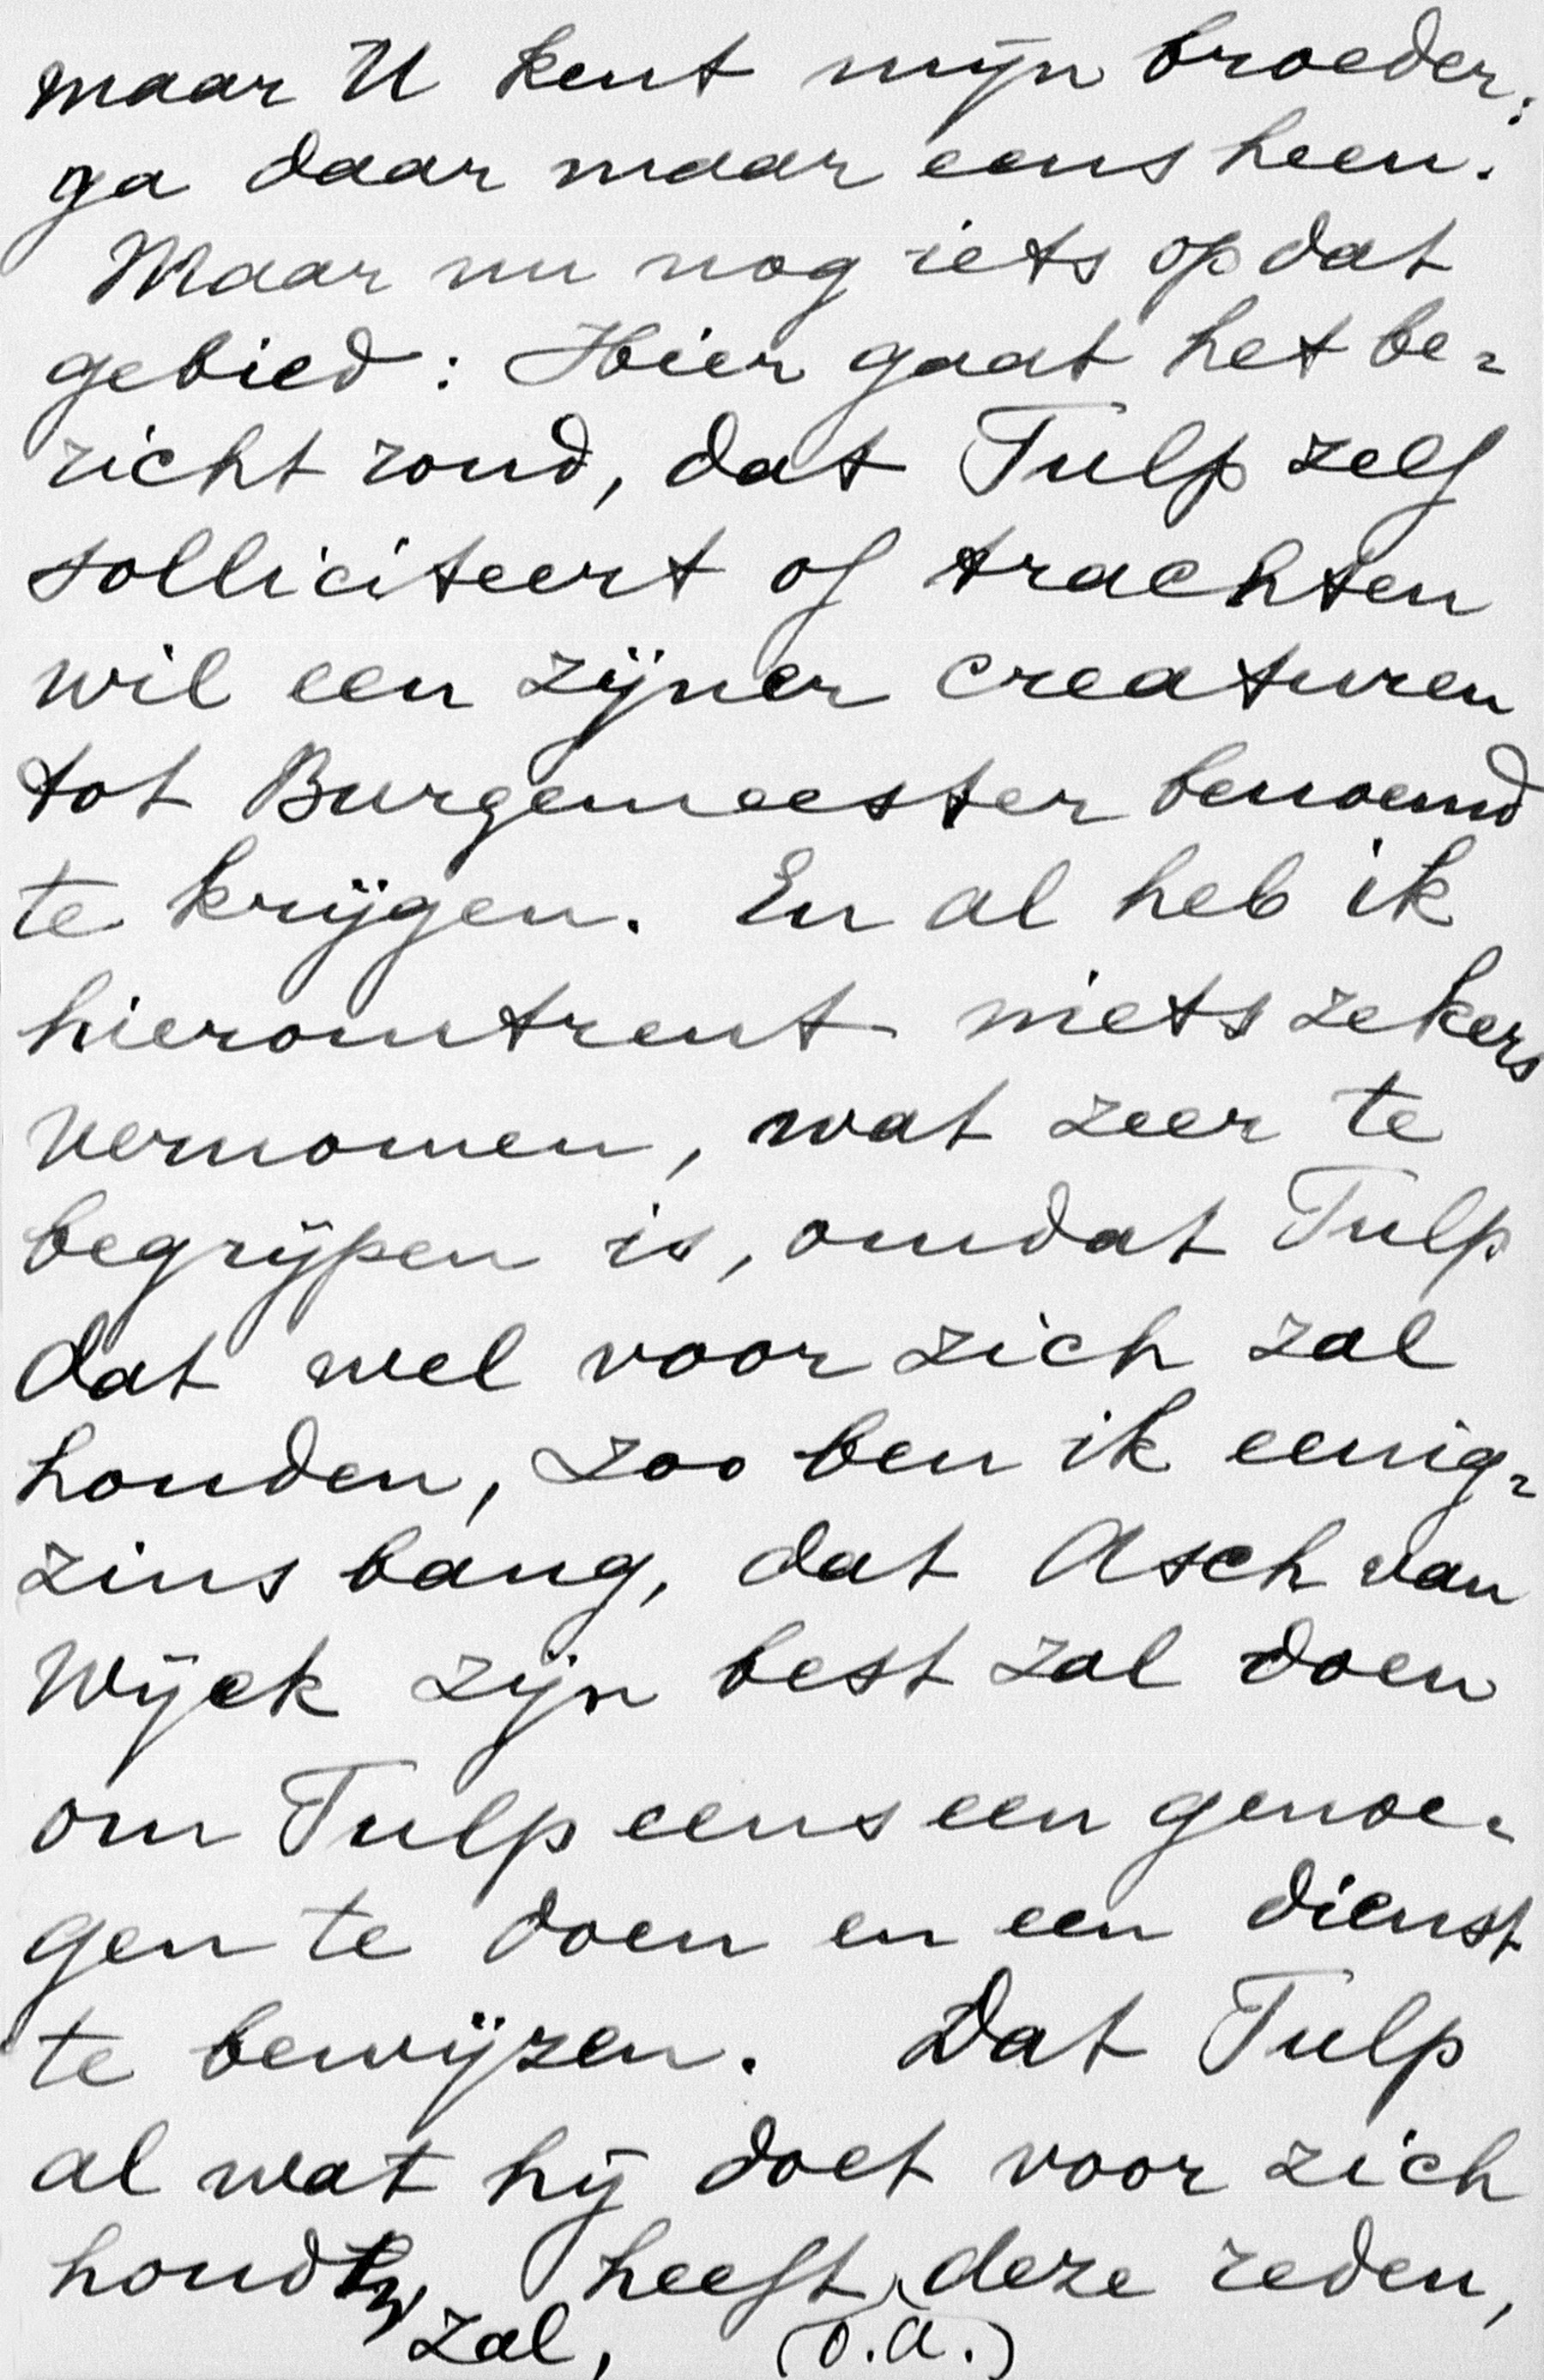 maar U kent mijn broeder;
ga daar maar eens heen.
Maar nu nog iets op dat
gebied: Hier gaat het be-
richt rond, dat Tulp zelf
solliciteert of trachten
wil een zijner creaturen
tot Burgemeester benoemd
te krijgen. En al heb ik
hieromtrent niets zekers
vernomen, wat zeer te
begrijpen is, omdat Tulp
dat wel voor zich zal
houden, zoo ben ik eenig-
zins bang, dat Asch van
Wijck zijn best zal doen
om Tulp eens een genoe-
gen te doen en een dienst
te bewijzen. Dat Tulp
al wat hij doet voor zich
houden heeft deze reden,
zal, (o.a.)